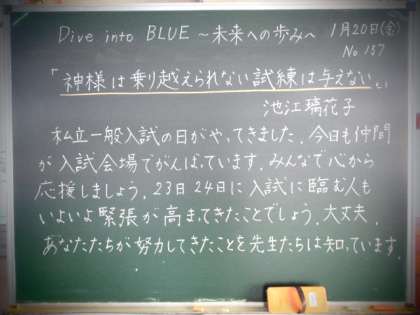 Dive into BLUE ～未来への歩みへ 1月20日(金)
No.157
「神様は乗り越えられない試練は与えない。」
池江璃花子
私立一般入試の日がやってきました。今日も仲間
が入試会場でがんばっています。みんなで心から
応援しましょう。23日24日に入試に臨む人も
いよいよ緊張が高まってきたことでしょう。大丈夫。
あなたたちが努力してきたことを先生たちは知っています。